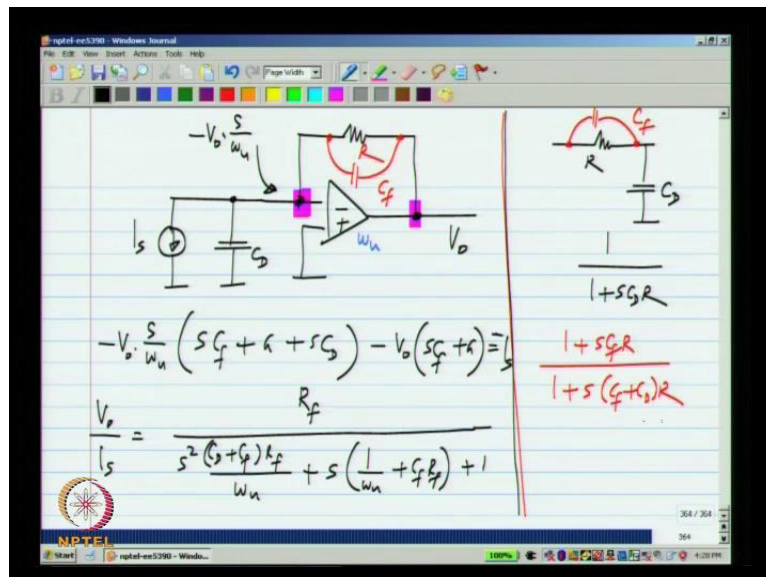 nptel-ee5390 - Windows Journal
File Edit View Insert Actions Tools Help
Page Width
B I
-V₀ · s/ωᵤ
R
C_f
I_s
C_D
−
+
ωᵤ
V₀
-V₀ · s/ωᵤ (sC_f + G + sC_D) - V₀(sC_f + G) = I_s
V₀/I_s = R_f / (s² (C_D + C_f) R_f/ωᵤ + s (1/ωᵤ + C_f R_f) + 1)
C_f
R
C_D
1 / (1 + sC_D R)
(1 + sC_f R) / (1 + s(C_f + C_D)R)
NPTEL
364 / 364
364
Start
nptel-ee5390 - Windo...
100%
4:28 PM